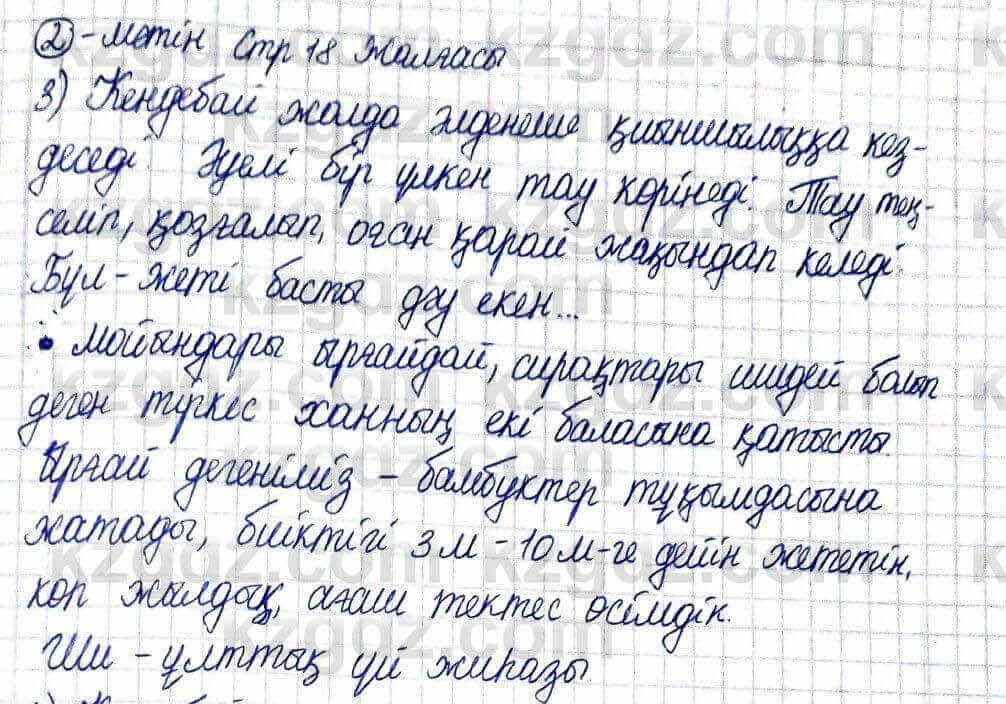 ②-мәтін Стр 18 Жалғасы
3) Кендебай жолда әлденеше қиыншылыққа кез-
деседі. Әуелі бір үлкен тау көрінеді. Тау теңселіп, қозғалып, оған қарай жақындап келеді.
Бұл - жеті басты дәу екен...
• мойындары ырғайдай, сирақтары шидей болып
деген тіркес ханның екі баласына қатысты.
Ырғай дегеніміз - бамбуктер тұқымдасына
жатады, биіктігі 3м - 10м-ге дейін жететін,
көп жылдық, ағаш тектес өсімдік.
Ши - ұлттық үй жиһазы
kzgdz.com